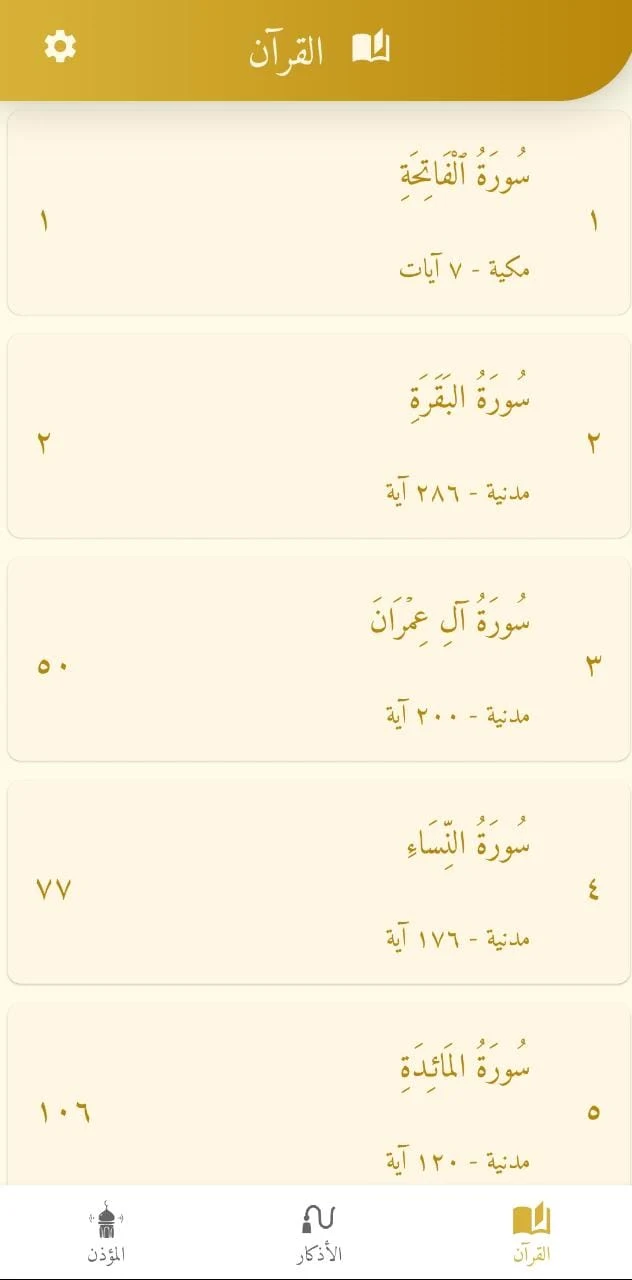 القرآن
١ سُورَةُ ٱلْفَاتِحَةِ ١
مكية - ٧ آيات
٢ سُورَةُ البَقَرَةِ ٢
مدنية - ٢٨٦ آية
٣ سُورَةُ آلِ عِمۡرَانَ ٥٠
مدنية - ٢٠٠ آية
٤ سُورَةُ النِّسَاءِ ٧٧
مدنية - ١٧٦ آية
٥ سُورَةُ المَائـِدَةِ ١٠٦
مدنية - ١٢٠ آية
القرآن الأذكار المؤذن